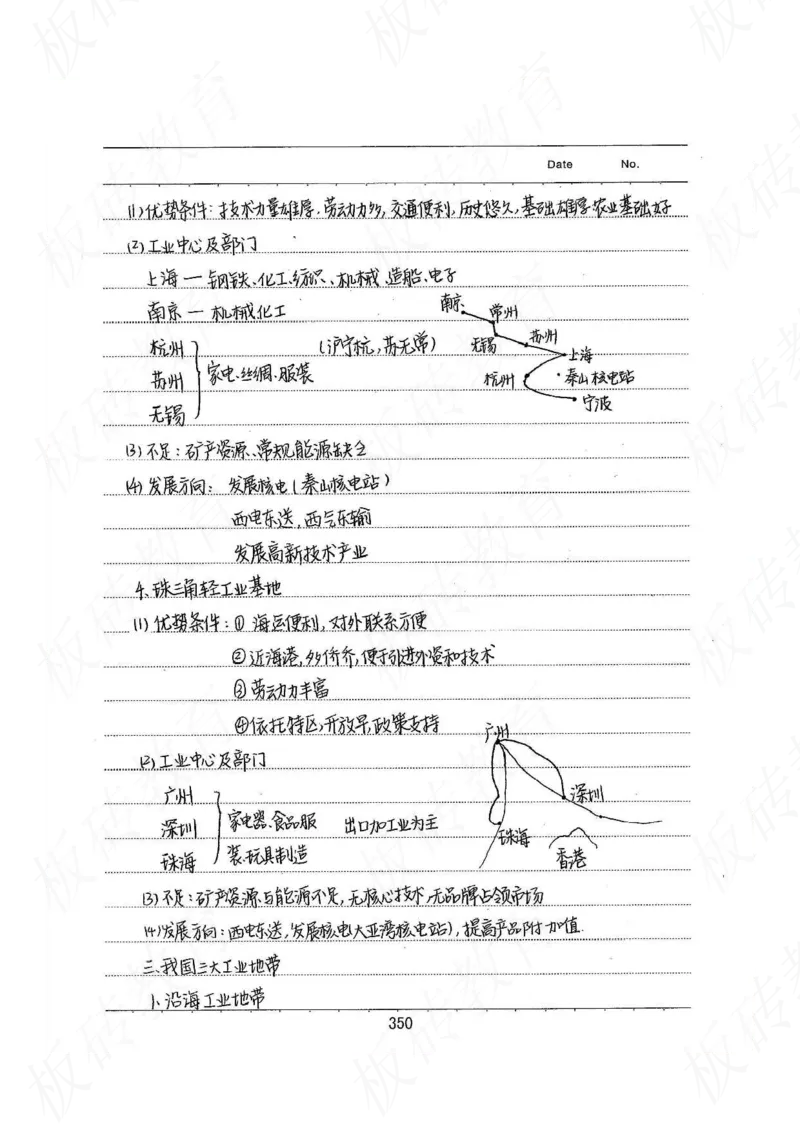 Date No.
(1)优势条件:技术力量雄厚,劳动力多,交通便利,历史悠久,基础雄厚 农业基础好
(2)工业中心及部门
上海—钢铁、化工、纺织、机械、造船、电子
南京—机械化工
南京
常州
杭州
(沪宁杭,苏无常)
无锡
苏州
上海
苏州
家电、丝绸、服装
杭州
秦山核电站
无锡
宁波
(3)不足:矿产资源、常规能源缺乏
(4)发展方向:发展核电(秦山核电站)
西电东送,西气东输
发展高新技术产业
4、珠三角轻工业基地
(1)优势条件:①海运便利,对外联系方便
②近海港,多侨乔,便于引进外资和技术
③劳动力丰富
④依托特区,开放早,政策支持
广州
(2)工业中心及部门
广州
深圳
深圳
家电器、食品服
出口加工业为主
珠海
珠海
装、玩具制造
香港
(3)不足:矿产资源与能源不足,无核心技术,无品牌占领市场
(4)发展方向:西电东送,发展核电大亚湾核电站),提高产品附加值.
三、我国三大工业地带
1、沿海工业地带
350
板砖教育